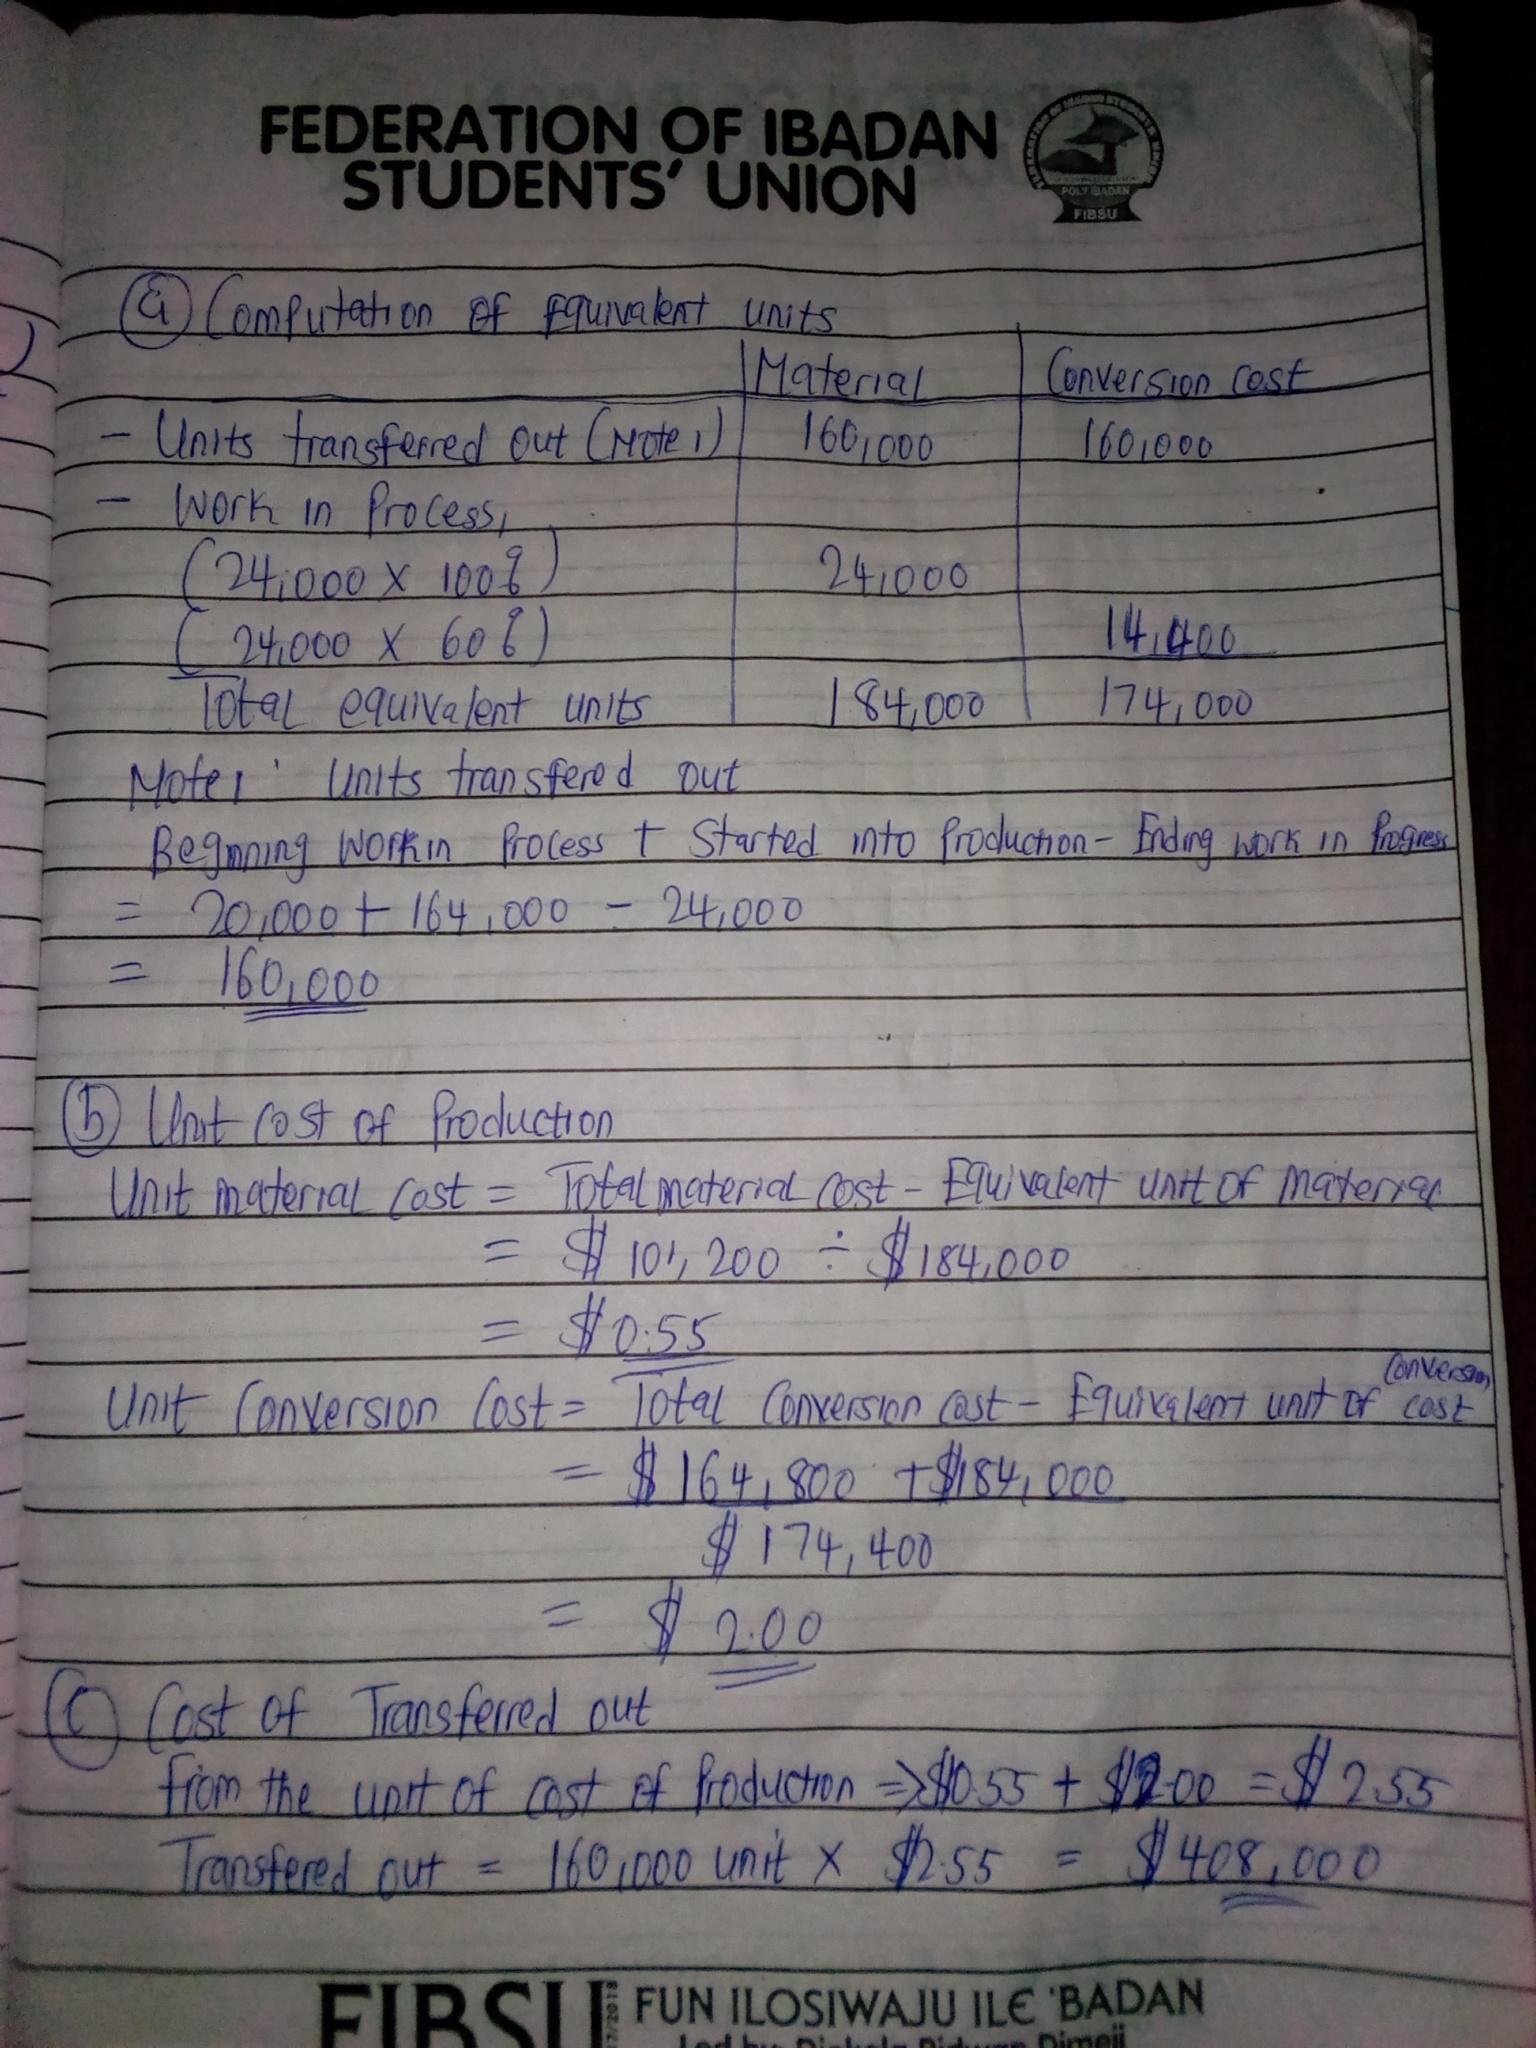 FEDERATION OF IBADAN
STUDENTS' UNION
POLY IBADAN
FIBSU
(a) Computation of Equivalent units
Material Conversion cost
- Units transferred out (Note 1) 160,000 160,000
- Work in Process,
(24,000 X 100%) 24,000
(24,000 X 60%) 14,400
Total equivalent units 184,000 174,000
Note 1: Units transfered out
Beginning Work in Process + Started into Production - Ending work in Progress
= 20,000 + 164,000 - 24,000
= 160,000
(b) Unit Cost of Production
Unit material cost = Total material cost - Equivalent unit of material
= $ 101,200 ÷ $184,000
= $0.55
Unit Conversion Cost = Total Conversion cost - Equivalent unit of conversion cost
= $164,800 + $184,000
$174,400
= $ 2.00
(c) Cost of Transferred out
from the unit of cost of Production => $0.55 + $2.00 = $2.55
Transfered out = 160,000 unit X $2.55 = $408,000
FIBSU 17/2018 FUN ILOSIWAJU ILE 'BADAN